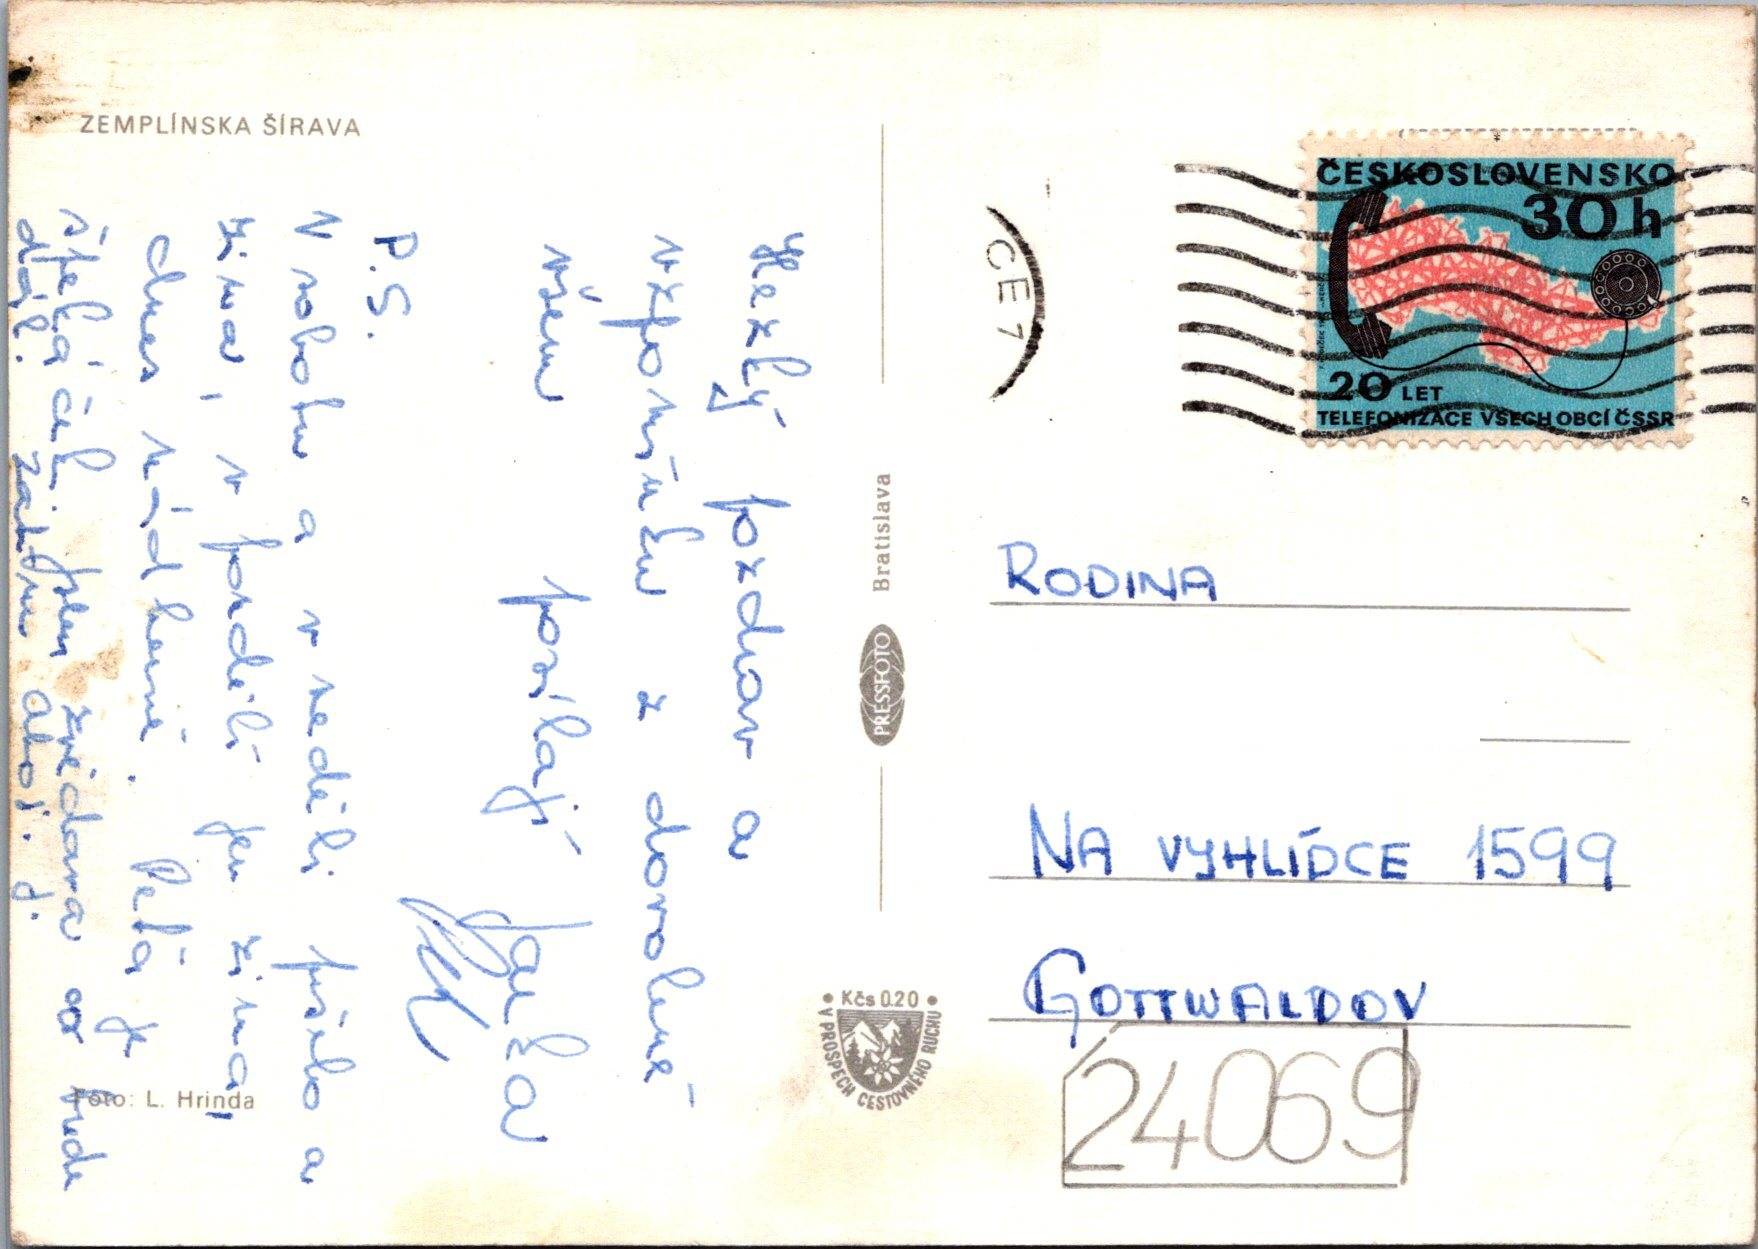 ZEMPLÍNSKA ŠÍRAVA
Hezký pozdrav a
vzpomínku z dovolené
všem posílají Jarka
P.S.
V sobotu a v neděli pršelo a
zima, v pondělí jen zima,
dnes nádherně. Péťa je
spelá čéh, jsem zvědava co bude
dál. Zatím ahoj. J.
Foto: L. Hrinda
Bratislava
PRESSFOTO
Kčs 0.20
V PROSPECH CESTOVNÉHO RUCHU
CE 1
ČESKOSLOVENSKO
30 h
20 LET
TELEFONIZACE VŠECH OBCÍ ČSSR
RODINA
NA VYHLÍDCE 1599
GOTTWALDOV
24069